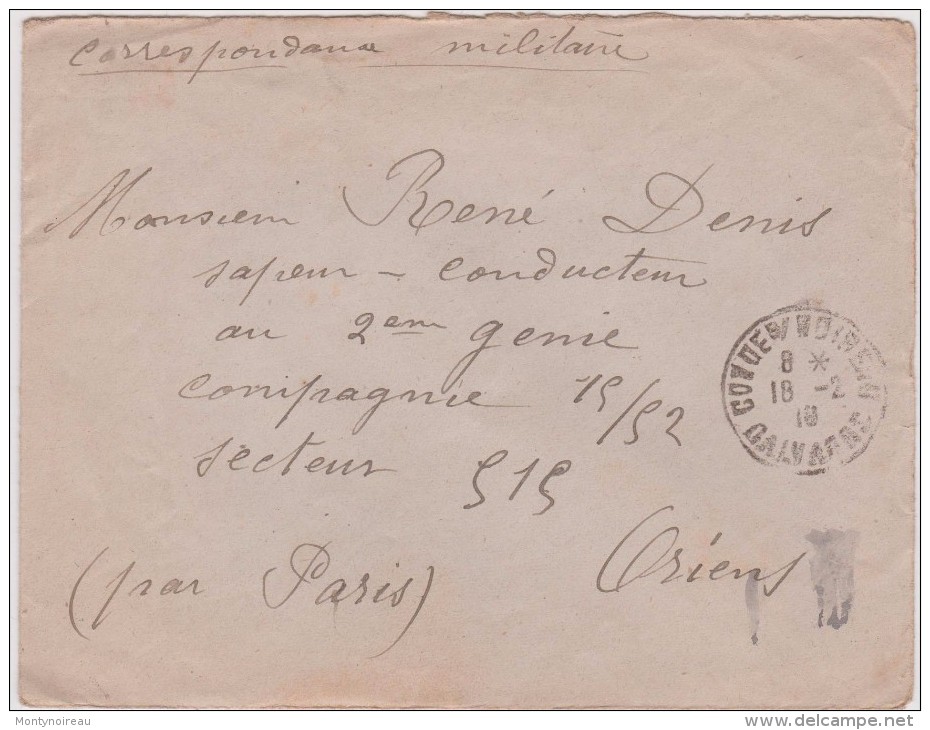 Correspondance militaire
Monsieur René Denis
sapeur - conducteur
au 2em genie
compagnie 15/52
secteur 515
(par Paris) Orient
CONDE S/ NOIREAU
8 *
18 -2
19
CALVADOS
Montynoireau
www.delcampe.net